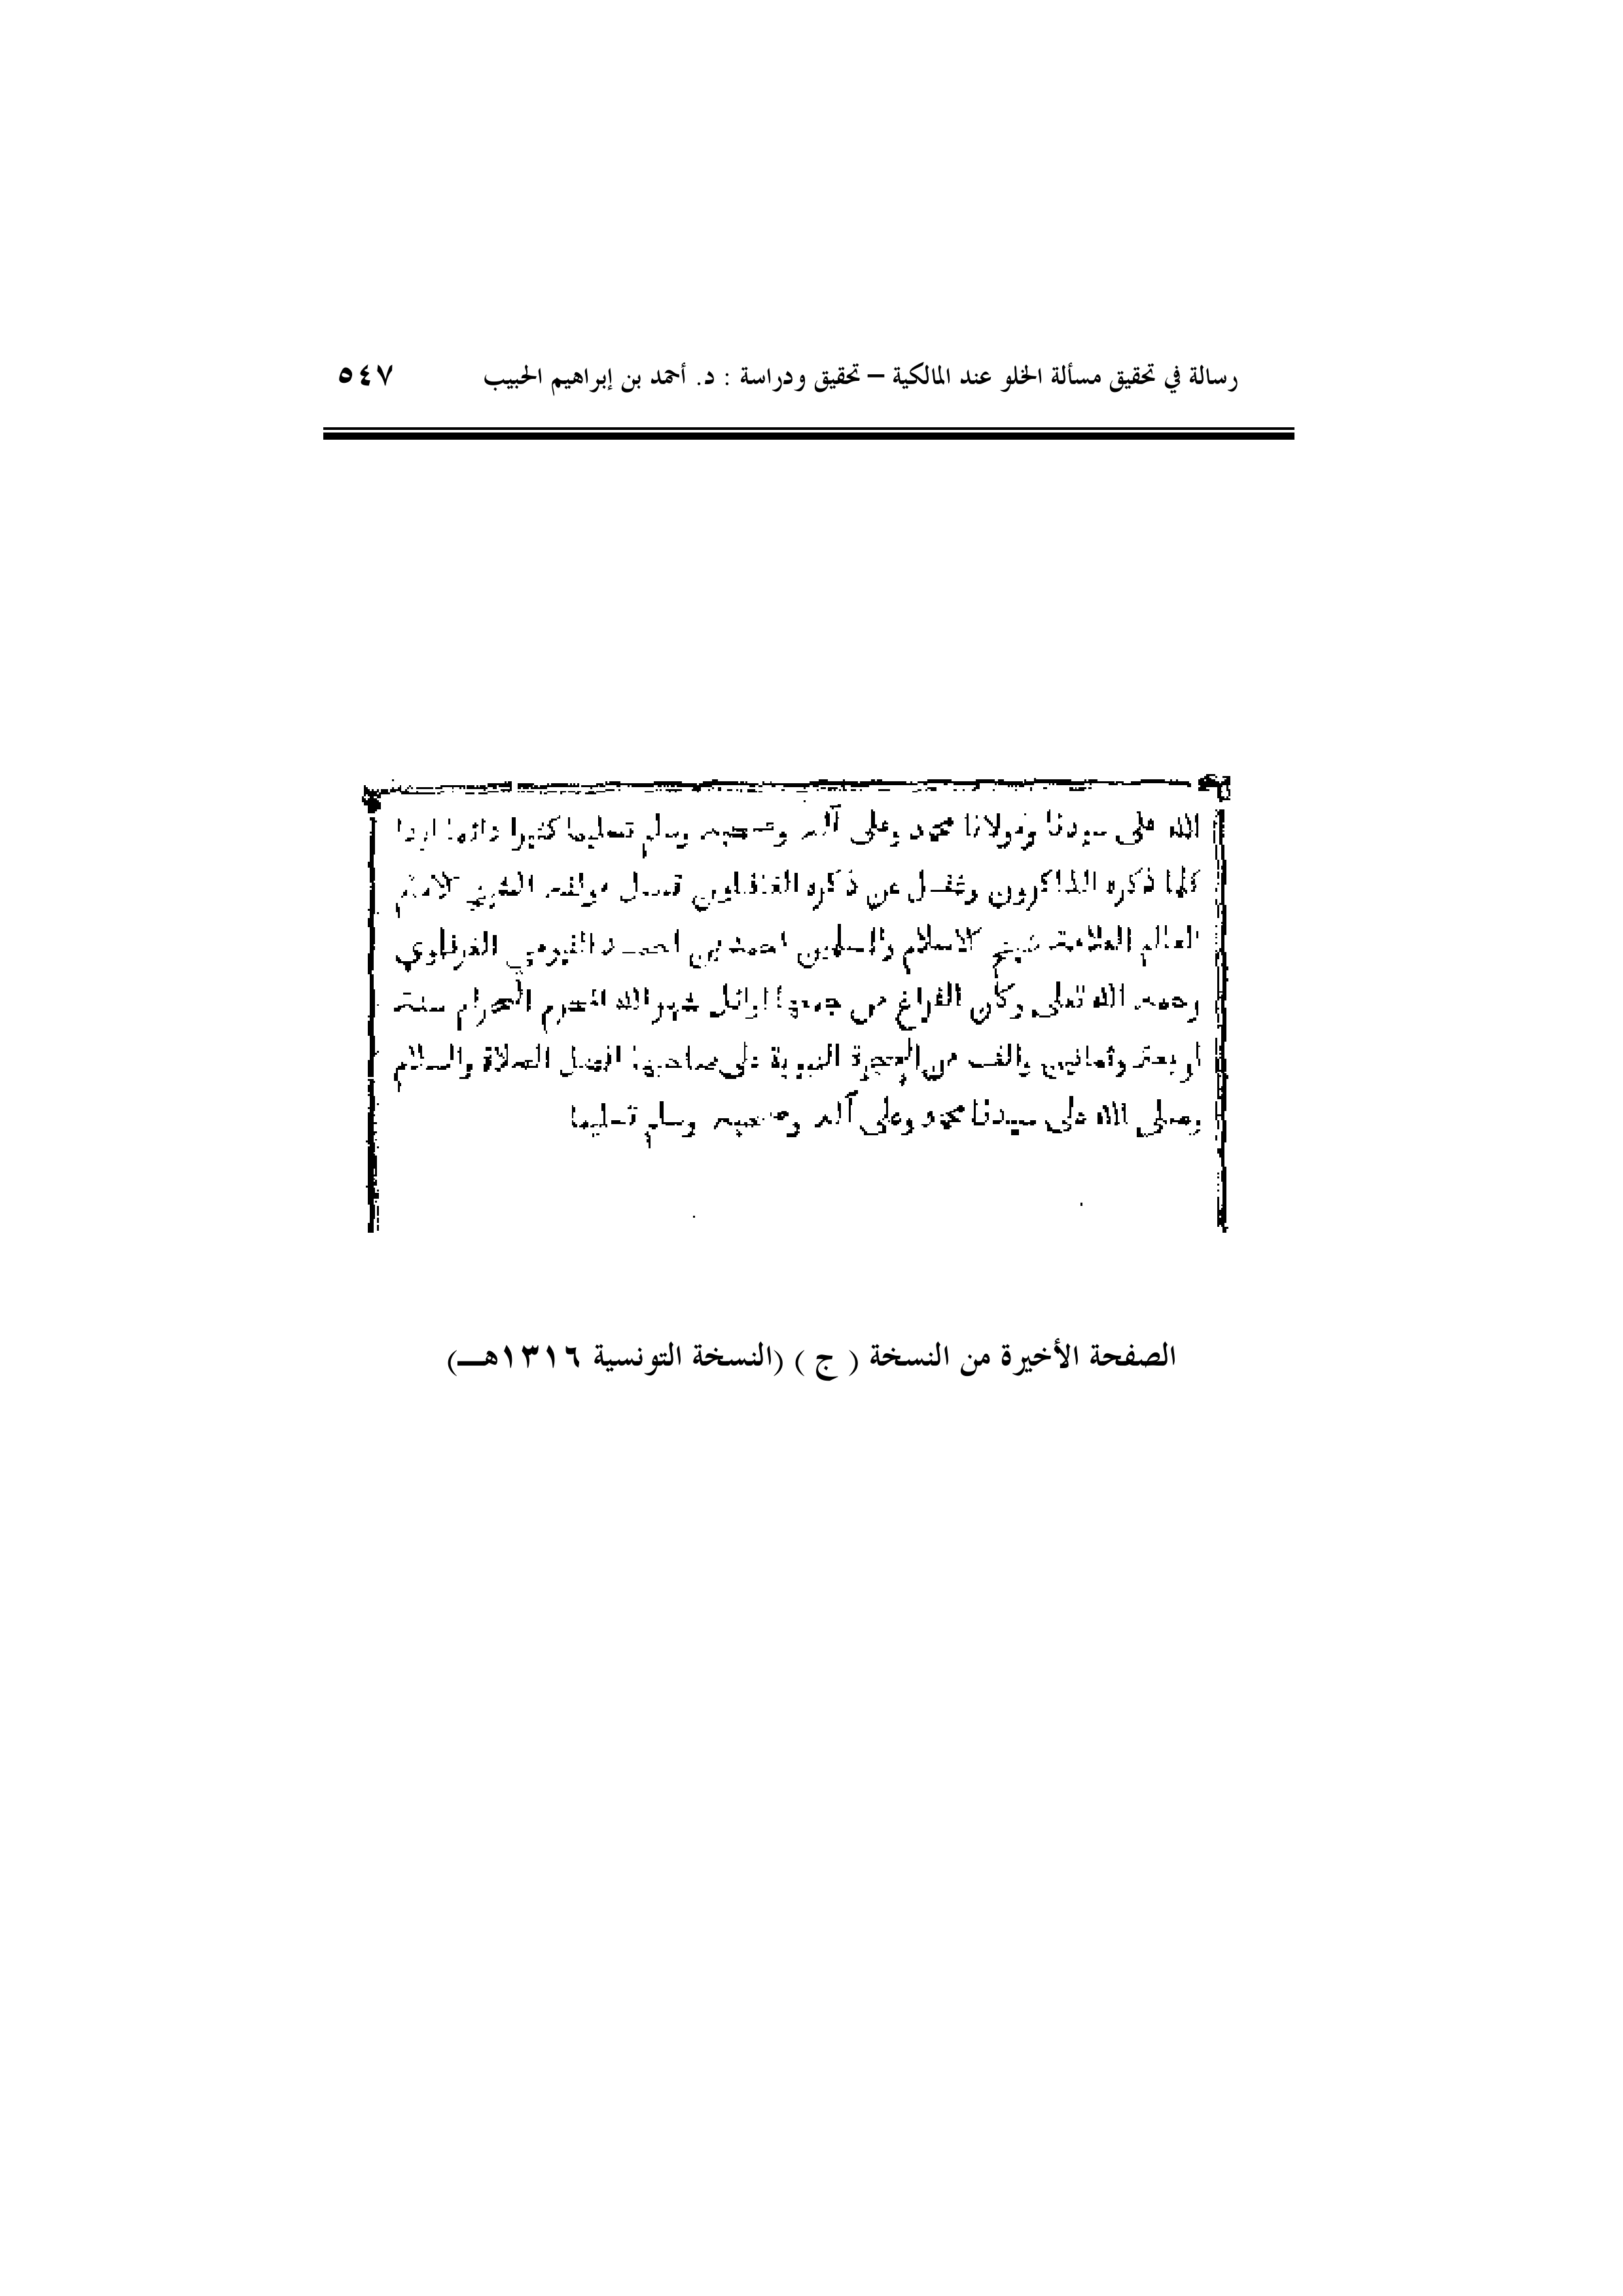 رسالة في تحقيق مسألة الخلو عند المالكية – تحقيق ودراسة : د. أحمد بن إبراهيم الحبيب ٥٤٧
الله على سيدنا ومولانا محمد وعلى آله وصحبه وسلم تسليما كثيرا دائما ابدا
كلما ذكره الذاكرون وغفل عن ذكره الغافلون قال مولفه الشيخ الامام
العالم العلامة شيخ الاسلام والمسلمين احمد بن احمد الفيومي الغرقاوي
رحمه الله تعلى وكان الفراغ من جمعها اوائل شهر الله المحرم الحرام سنة
اربعة وثمانين والف من الهجرة النبوية على صاحبها افضل الصلاة والسلام
وصلى الله على سيدنا محمد وعلى آله وصحبه وسلم تسليما
الصفحة الأخيرة من النسخة ( ج ) (النسخة التونسية ١٣١٦هـ)